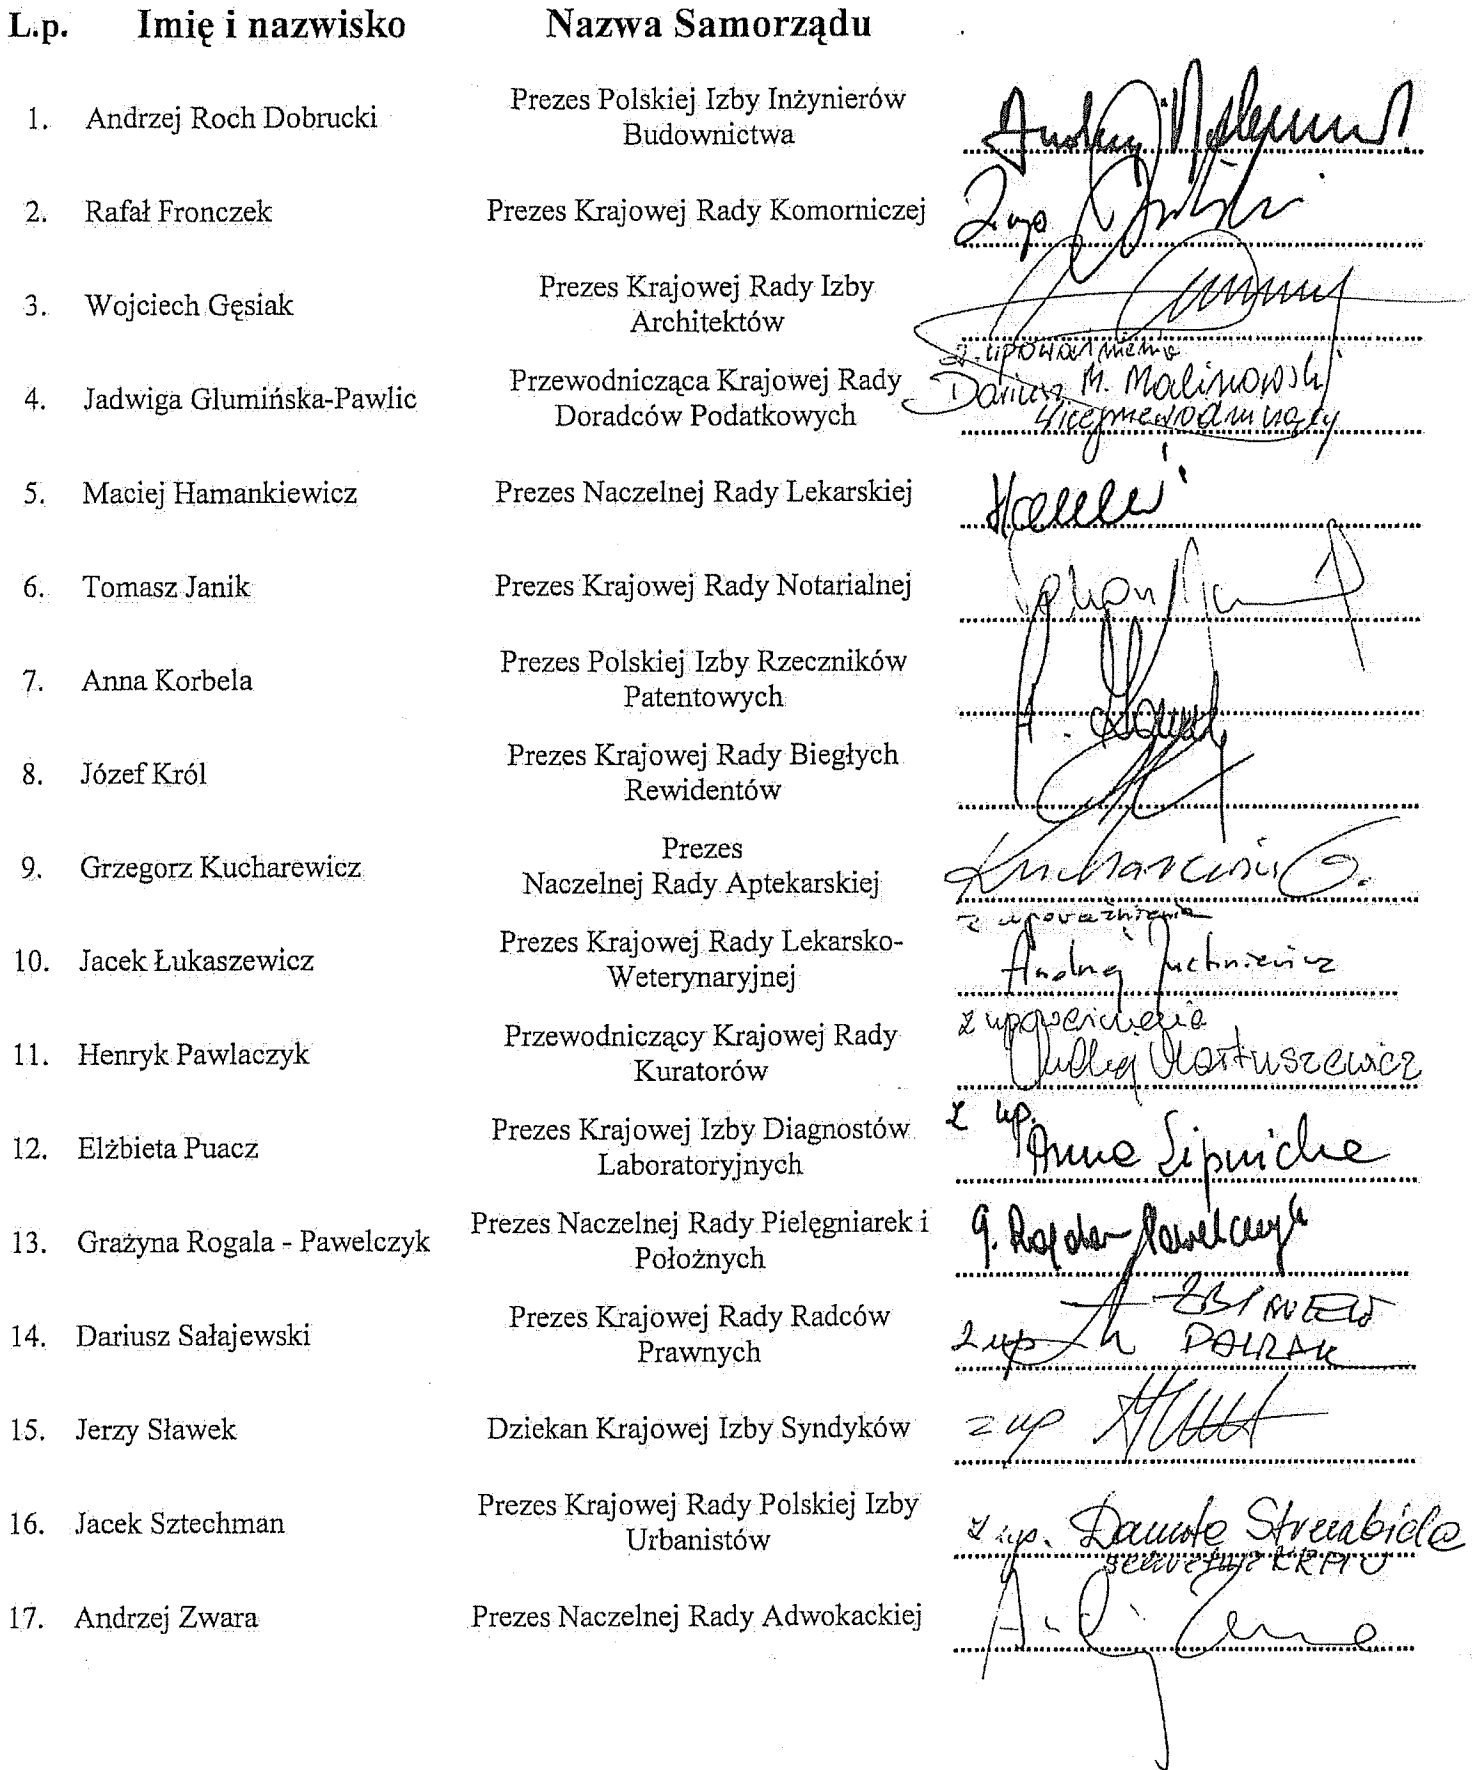 L.p. Imię i nazwisko Nazwa Samorządu
1. Andrzej Roch Dobrucki Prezes Polskiej Izby Inżynierów
Budownictwa
2. Rafał Fronczek Prezes Krajowej Rady Komorniczej
Z up.
3. Wojciech Gęsiak Prezes Krajowej Rady Izby
Architektów
z upoważnienia
4. Jadwiga Glumińska-Pawlic Przewodnicząca Krajowej Rady
Doradców Podatkowych
Dariusz M. Malinowski
Wiceprzewodniczący
5. Maciej Hamankiewicz Prezes Naczelnej Rady Lekarskiej
6. Tomasz Janik Prezes Krajowej Rady Notarialnej
7. Anna Korbela Prezes Polskiej Izby Rzeczników
Patentowych
A.
8. Józef Król Prezes Krajowej Rady Biegłych
Rewidentów
9. Grzegorz Kucharewicz Prezes
Naczelnej Rady Aptekarskiej
Kucharewicz G.
z upoważnienia
10. Jacek Łukaszewicz Prezes Krajowej Rady Lekarsko-
Weterynaryjnej
Andrzej Juchniewicz
z upoważnienia
11. Henryk Pawlaczyk Przewodniczący Krajowej Rady
Kuratorów
Martuszewicz
z up.
12. Elżbieta Puacz Prezes Krajowej Izby Diagnostów
Laboratoryjnych
Anna Lipnicka
13. Grażyna Rogala - Pawelczyk Prezes Naczelnej Rady Pielęgniarek i
Położnych
G. Rogala-Pawelczyk
14. Dariusz Sałajewski Prezes Krajowej Rady Radców
Prawnych
z up ZBIGNIEW
PAWLAK
15. Jerzy Sławek Dziekan Krajowej Izby Syndyków
z up
16. Jacek Sztechman Prezes Krajowej Rady Polskiej Izby
Urbanistów
z up. Danuta Strembicka
sekretarz KRPIU
17. Andrzej Zwara Prezes Naczelnej Rady Adwokackiej